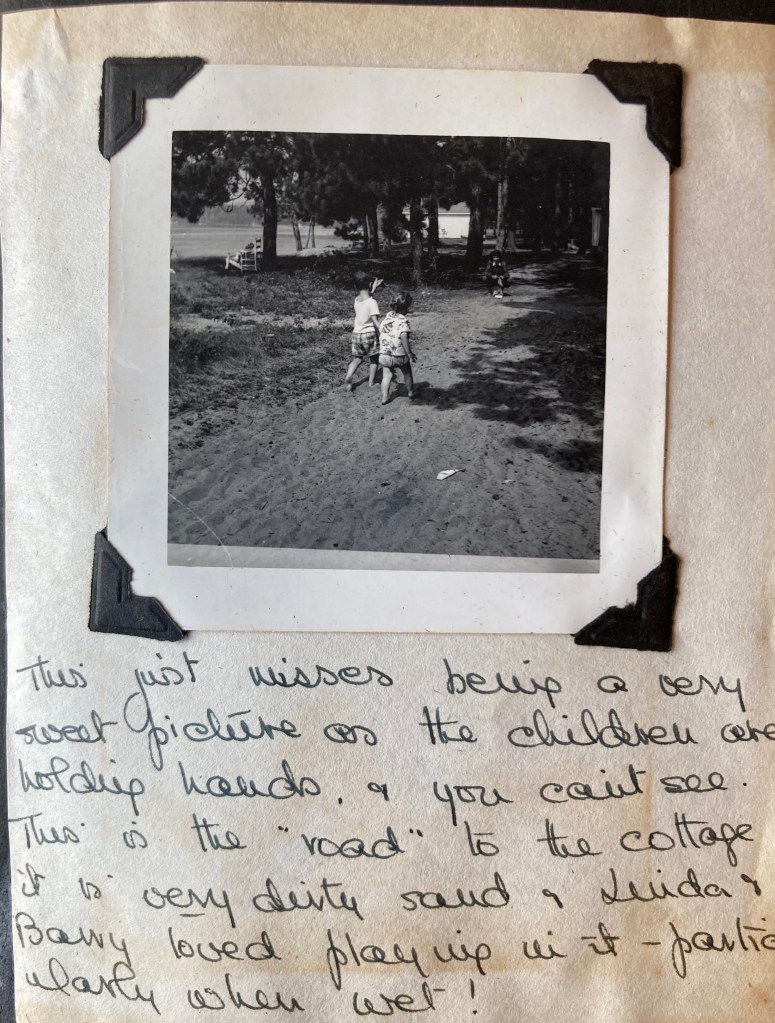 This just misses being a very
sweet picture as the children are
holding hands, & you can't see.
This is the "road" to the cottage
it is very dirty sand & Linda &
Barry loved playing in it - partic
ularly when wet!